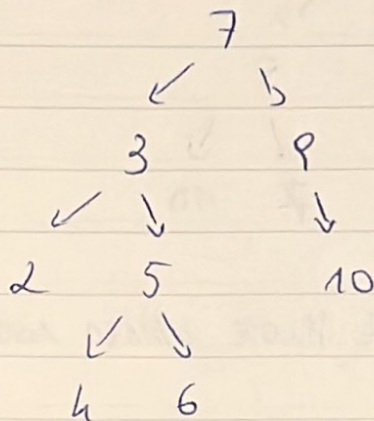 7
3 9
2 5 10
4 6